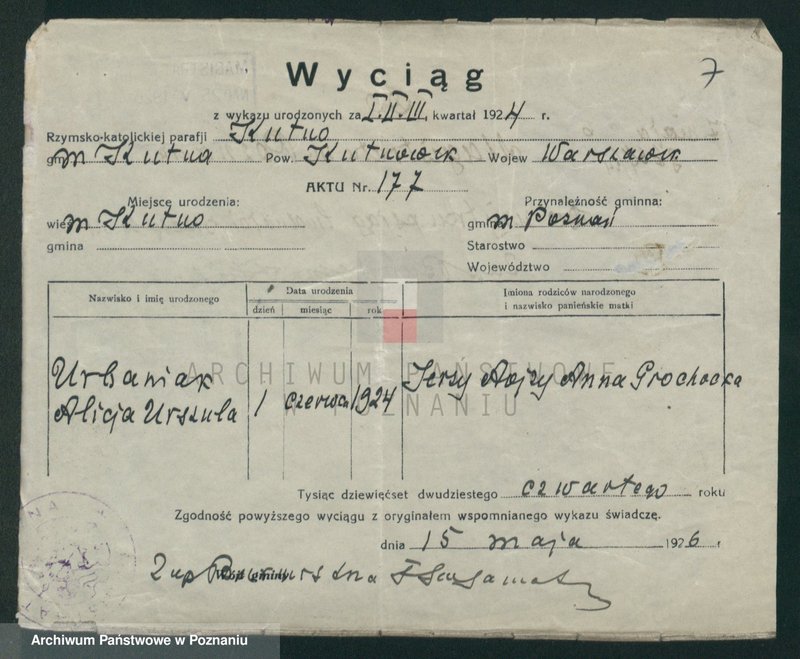 7
Wyciąg
z wykazu urodzonych za I. II. III. kwartał 1924 r.
Rzymsko-katolickiej parafji Kutno
gm. m Kutna Pow. Kutnowsk Wojew Warszawsk
AKTU Nr. 177
Miejsce urodzenia: Przynależność gminna:
wieś m Kutno gmina m Poznań
gmina Starostwo
Województwo
Nazwisko i imię urodzonego Data urodzenia Imiona rodziców narodzonego
dzień miesiąc rok i nazwisko panieńskie matki
Urbaniak Jerzy Anna Prochocka
Alicja Urszula 1 czerwca 1924
ARCHIWUM PAŃSTWOWE
W POZNANIU
Tysiąc dziewięćset dwudziestego czwartego roku
Zgodność powyższego wyciągu z oryginałem wspomnianego wykazu świadczę.
dnia 15 maja 1926 r.
Wójt gminy
Archiwum Państwowe w Poznaniu